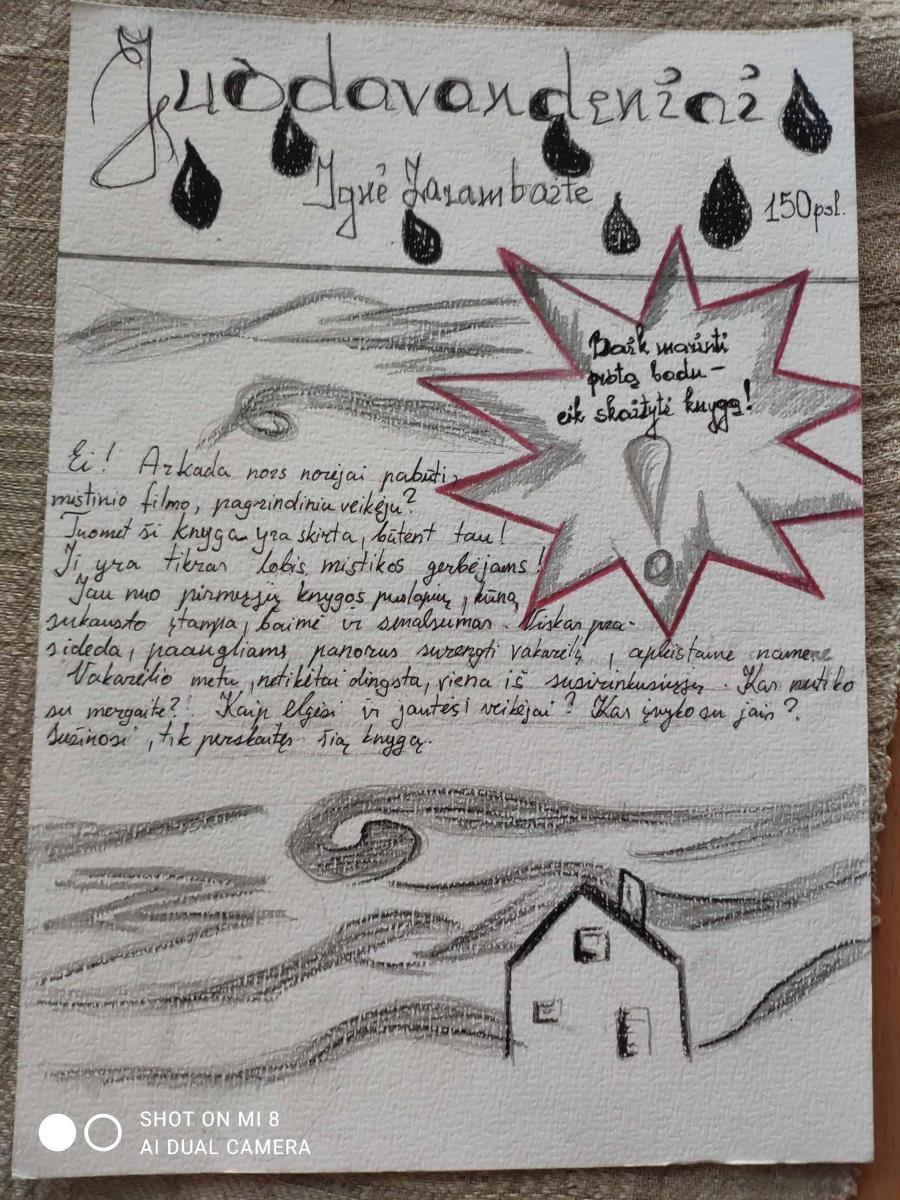 Juodavandeniai
Ignė Zarambaitė
150psl.
Baik marinti
protą badu -
eik skaityti knygą!
Ei! Arkada nors norėjai pabūti,
mistinio filmo, pagrindiniu veikėju?
Tuomet ši knyga yra skirta, būtent tau!
Ji yra tikras lobis mistikos gerbėjams!
Jau nuo pirmųjų knygos puslapių, kūną
sukausto įtampa, baimė ir smalsumas. Viskas pra-
sideda, paaugliams panorus surengti vakarėlį, apleistame name.
Vakarėlio metu, netikėtai dingsta, viena iš susirinkusiųjų. Kas nutiko
su mergaite? Kaip elgėsi ir jautėsi veikėjai? Kas įvyko su jais?
Sužinosi, tik perskaitęs šią knygą.
SHOT ON MI 8
AI DUAL CAMERA